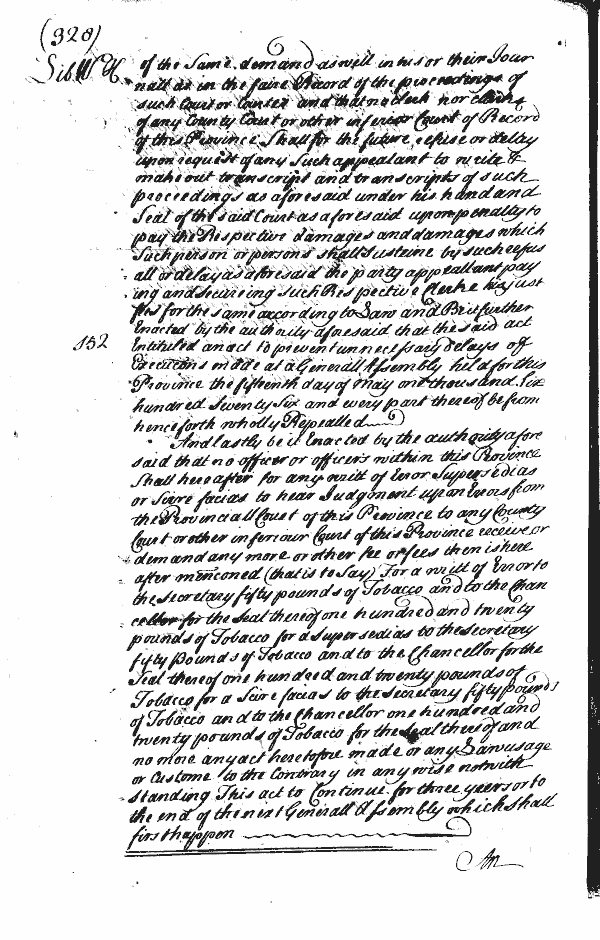 (320)
Lib. W H.
of the Same demand as well in his or their Jour
nall as in the faire Record of the proceedings of
such Court or Courts and that no clerk nor clerks
of any County Court or other inferior Court of Record
of this Province Shall for the future refuse or delay
upon request of any Such appealant to write &
make out transcript and transcripts of such
proceedings as aforesaid under his hand and
Seal of the said Court as aforesaid upon penalty to
pay the Respective damages and damages which
Such person or persons shall Susteine by such refus
all or delay as aforesaid the party appeallant pay
ing and secureing such Respective Clerke his just
fees for the same according to Law and Be it further
Enacted by the authority aforesaid that the said act
152
Entituled an act to prevent unnecessary delays of
Executions made at a Generall Assembly held for this
Province the fifteenth day of May one thousand Six
hundred Seventy Six and every part thereof be from
henceforth wholly Repealled
And lastly be it Enacted by the authority afore
said that no officer or officers within this Province
Shall hereafter for any writt of Error Supersedias
or Scire facias to hear Judgment upon Errors from
the Provinciall Court of this Province to any County
Court or other inferiour Court of this Province receive or
demand any more or other fee or fees then is here
after menconed (that is to Say) For a writt of Error to
the Secretary fifty pounds of Tobacco and to the Chan
cellor for the Seal thereof one hundred and twenty
pounds of Tobacco for a Supersedias to the Secretary
fifty Pounds of Tobacco and to the Chancellor for the
Seal thereof one hundred and twenty pounds of
Tobacco for a Scire facias to the Secretary fifty pounds
of Tobacco and to the Chancellor one hundred and
twenty pounds of Tobacco for the Seal thereof and
no more any act heretofore made or any Law usage
or Custome to the Contrary in any wise notwith
standing This act to Continue for three years or to
the end of the next Generall Assembly which shall
first happen
An